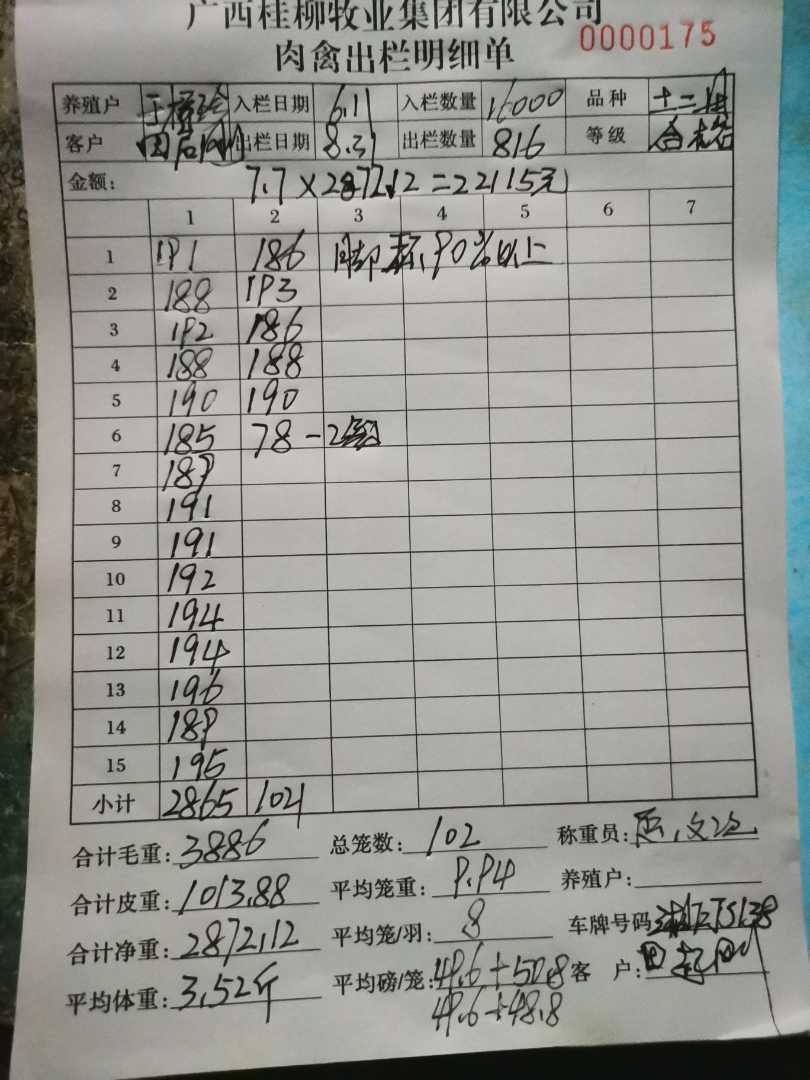 广西桂柳牧业集团有限公司
肉禽出栏明细单 0000175
养殖户 入栏日期 6.11 入栏数量 16000 品种
客户 出栏日期 8.31 出栏数量 816 等级 合格
金额: 7.7×2872.12=22115元
1 2 3 4 5 6 7
1 191 186 脚标,90%以上
2 188 193
3 192 186
4 188 188
5 190 190
6 185 78-2
7 189
8 191
9 191
10 192
11 194
12 194
13 196
14 189
15 195
小计 2865 1021
合计毛重: 3886 总笼数: 102 称重员:
合计皮重: 1013.88 平均笼重: 9.94 养殖户:
合计净重: 2872.12 平均笼/羽: 8 车牌号码
平均体重: 3.52斤 平均磅/笼: 49.6+50.8 客户:
49.6+48.8